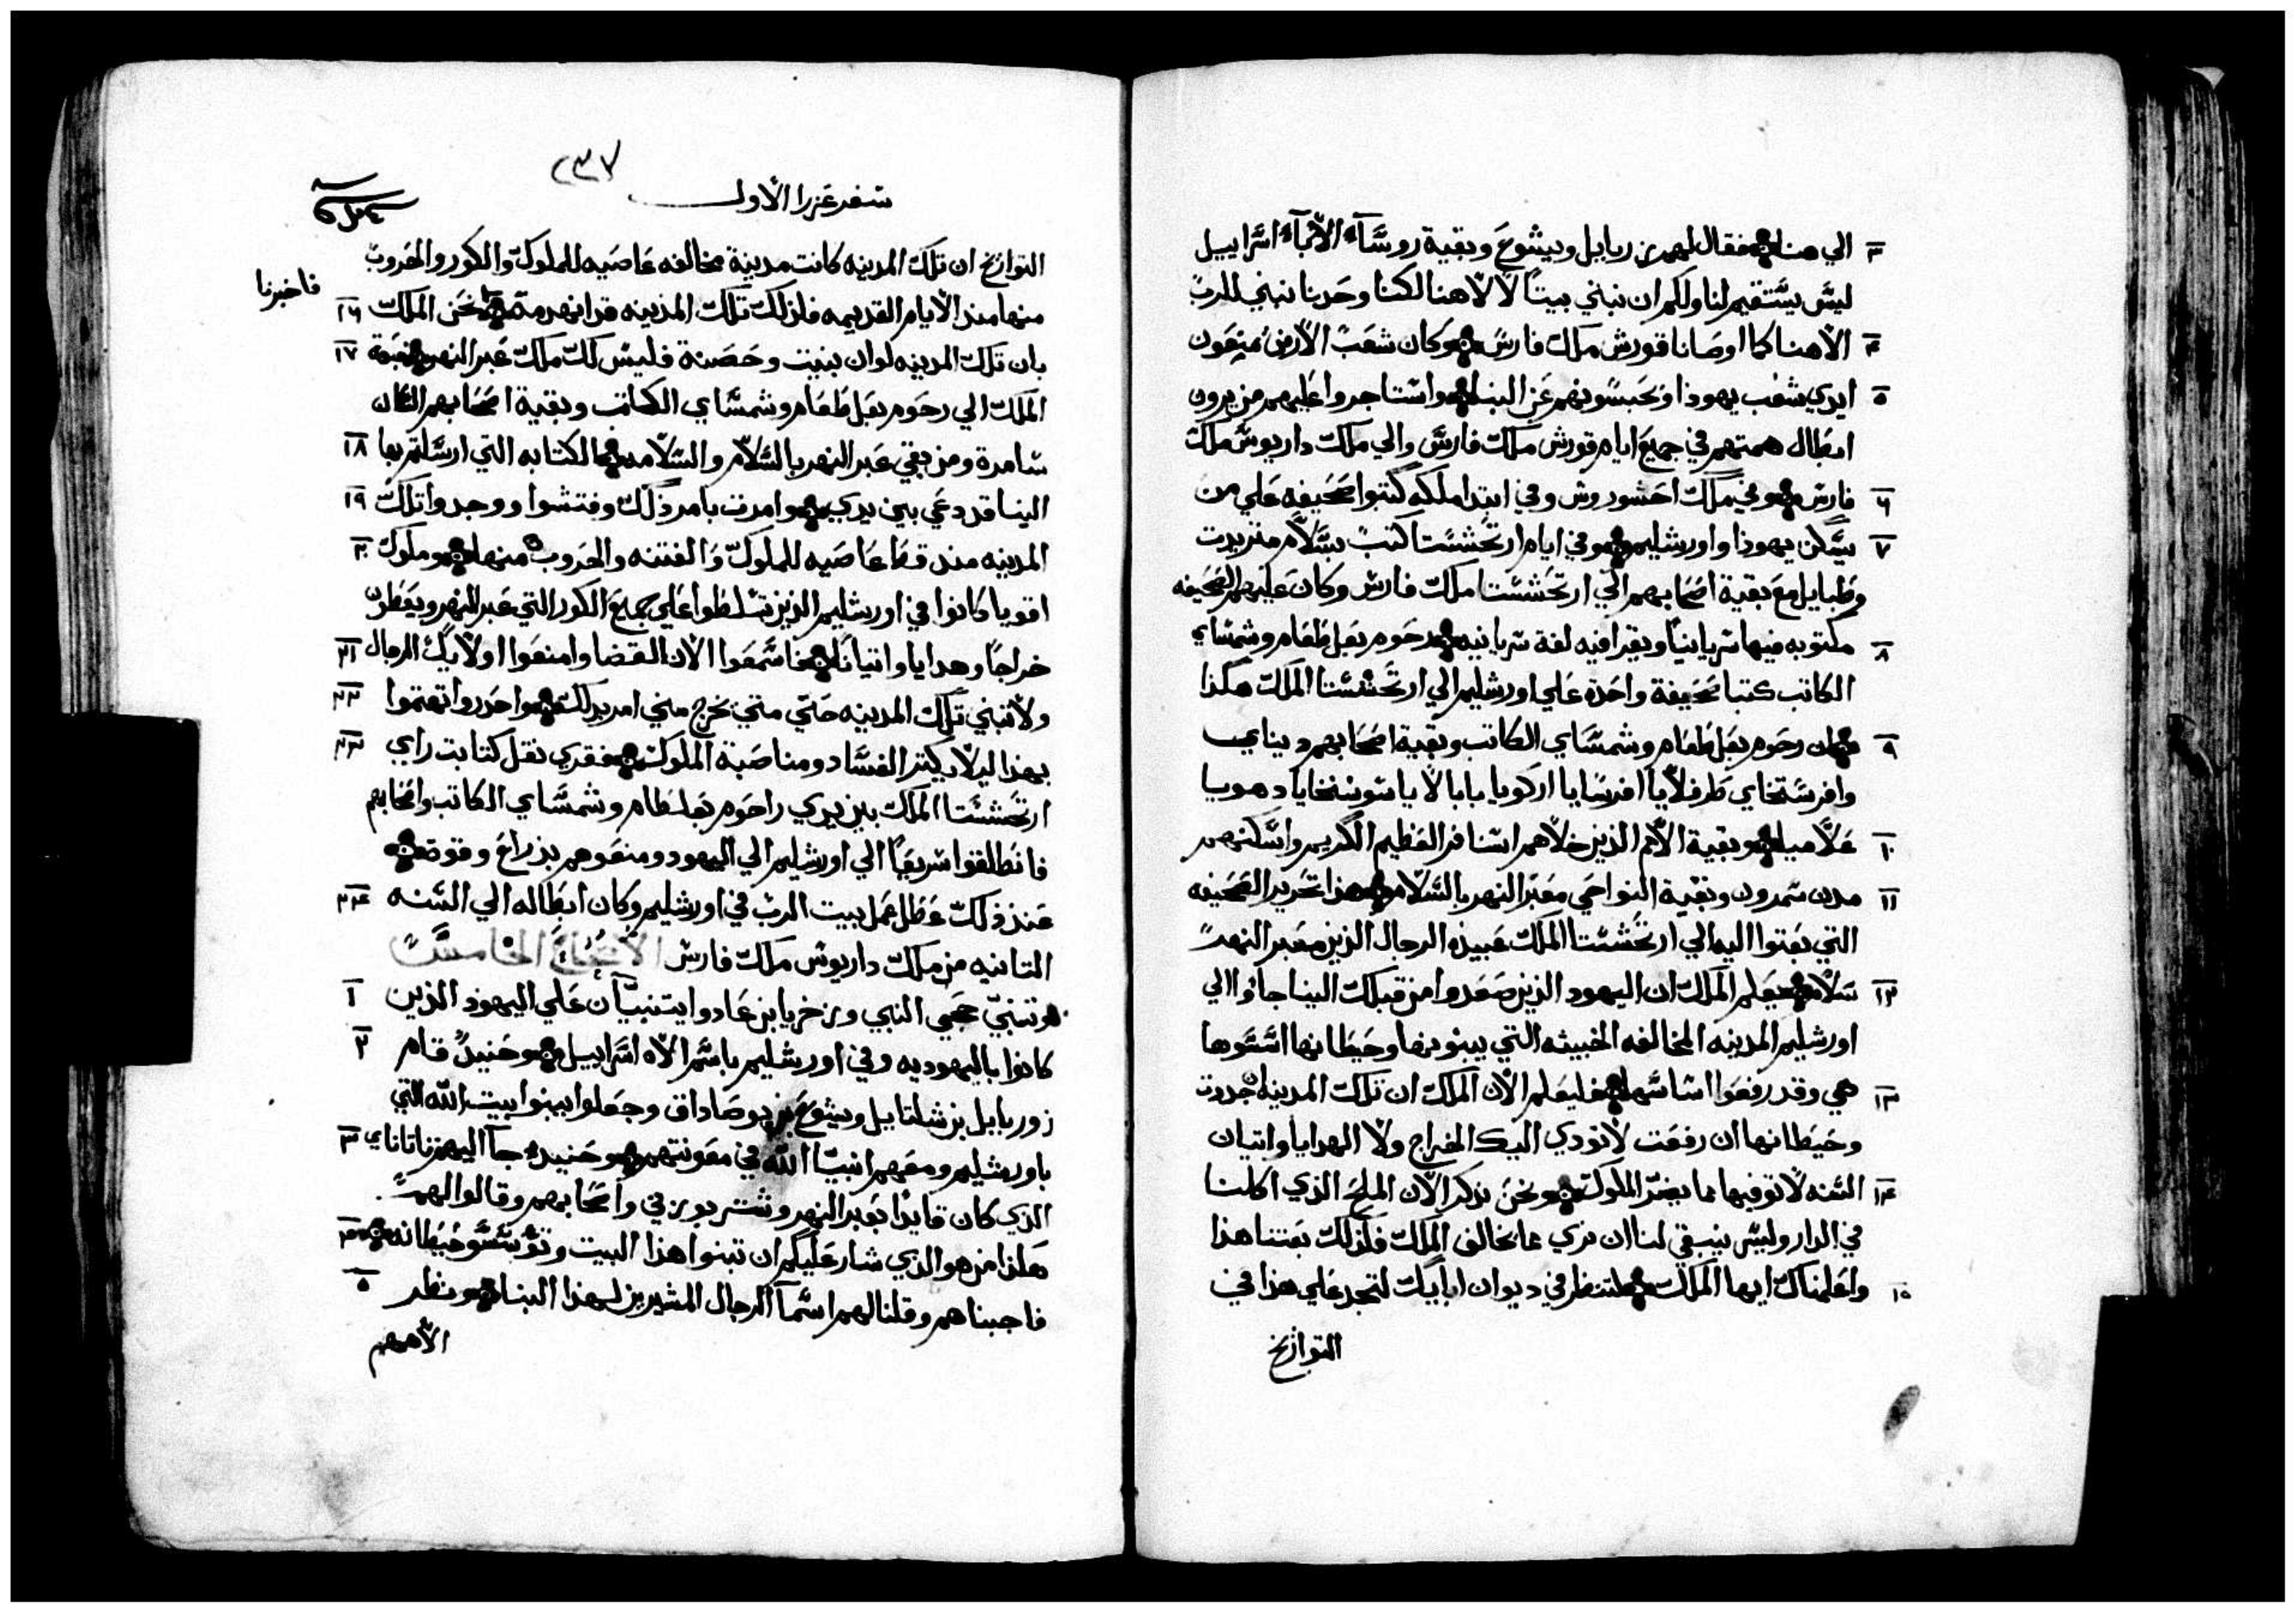 الي هنا فقال لهم زربابل ويشوع وبقية روسآء الابآء اسراييل ٣
ليس يستقيم لنا ولكم ان نبني بيتًا لالاهنا لكننا وحدنا نبني للرب
الاهنا كما اوصانا قورش ملك فارس وكان شعب الارض يمنعون ٤
ايدي شعب يهوذا ويحبسونهم عن البنا واستاجروا عليهم من يرون ٥
ابطال همتهم في جميع ايام قورش ملك فارس والي ملك داريوش ملك
فارس وفي ملك احشوروش وفي ابتدا ملكه كتبوا صحيفه علي من ٦
يسكن يهوذا واورشليم وفي ايام ارتحششتا كتب بسلام متريدت ٧
وطبايل مع بقية اصحابهم الي ارتحششتا ملك فارس وكان عليهم الصحيفه
مكتوبه فيها سريانيًا ويقرا فيه لغة سريانيه رحوم بعل طعام وشمشاي ٨
الكاتب كتبا صحيفة واحدة علي اورشليم الي ارتحششتا الملك هكذا
من رحوم بعل طعام وشمشاي الكاتب وبقية اصحابهم دينايي ٩
وافرستخاي طرفلايا افرسايا اركويا بابالايا شوشنخايا دهويا
علاميا وبقية الامم الذين جلاهم اسنافر العظيم الكريم واسكنهم ١٠
مدن شمرون وبقية النواحي معبر النهر بالسلام هذا تحرير الصحيفه ١١
التي بعتوا اليه الي ارتحششتا الملك عبيده الرجال الذين معبر النهر
سلام يعلم الملك ان اليهود الذين صعدوا من قبلك الينا جاوا الي ١٢
اورشليم المدينه المخالفه الخبيثه التي يبنونها وحيطانها اسسوها
هي وقد رفعوا اساسها فليعلم الان الملك ان تلك المدينه ان جددت ١٣
وحيطانها ان رفعت لا تودي اليك الخراج ولا الهدايا واتيان
السنه لا توفيها مما يضر الملوك ونحن نذكر الان الملح الذي اكلنا ١٤
في الدار وليس ينبقي لنا ان نري ما يخالف الملك فلذلك بعتنا هذا
واعلمناك ايها الملك لتنظر في ديوان ابايك لتجد علي هذا في ١٥
التوازيخ
٢٣٧
سفر عزرا الاول
التوازيخ ان تلك المدينه كانت مدينة مخالفه عاصيه للملوك والكور والحروب
فاخبرنا
منها منذ الايام القديمه فلذلك تلك المدينه قد انهدمت نحن الملك ١٦
بان تلك المدينه لو ان بنيت وحصنة فليس لك ملك عبر النهر فبعت ١٧
الملك الي رحوم بعل طعام وشمشاي الكاتب وبقية اصحابهم السكان
سامرة ومن بقي عبر النهر بالسلام والسلامه الكتابه التي ارسلتم بها ١٨
الينا قد دعي بين يدي وامرت بامر ذلك وفتشوا ووجدوا تلك ١٩
المدينه منذ قط عاصيه للملوك والفتنه والحروب منها وملوك ٢٠
اقويا كانوا في اورشليم الذين تسلطوا علي جميع الكور التي عبر النهر ويعطون
خراجًا وهدايا واتيانًا فاسمعوا الان القضا وامنعوا اولايك الرجال ٢١
ولا تبني تلك المدينه حتي متي يخرج مني امر بذلك واحدروا تهتموا ٢٢
بهذا ليلا يكتر الفساد ومناصبة الملوك فقري نقل كتابت راي ٢٣
ارتحششتا الملك بين يدي راحوم بعلطام وشمشاي الكاتب واصحابهم
فانطلقوا سريعًا الي اورشليم الي اليهود ومنعوهم بذراع وقوة
عند ذلك عطل عمل بيت الرب في اورشليم وكان ابطاله الي السنه ٢٤
التانيه من ملك داريوش ملك فارس الاصحاح الخامس
وتنبي حجي النبي وزخريا بن عادوا يتنبيان علي اليهود الذين ١
كانوا باليهوديه وفي اورشليم باسم الاه اسراييل وحنيد قام ٢
زوربابل بن شلتاييل ويشوع بن يوصاداق وجعلوا يبنوا بيت الله التي
باورشليم ومعهم انبيا الله في معونتهم وحنيد جآ اليهم تاناناي ٣
الذي كان قايدا بعبر النهر وشتر بوزني واصحابهم وقالوا لهم
هكذا من هو الذي شار عليكم ان تبنوا هذا البيت وتوسسو حيطانه ٤
فاجبناهم وقلنا لهم اسمآ الرجال المشيرين لهذا البنا ونظر ٥
الاههم